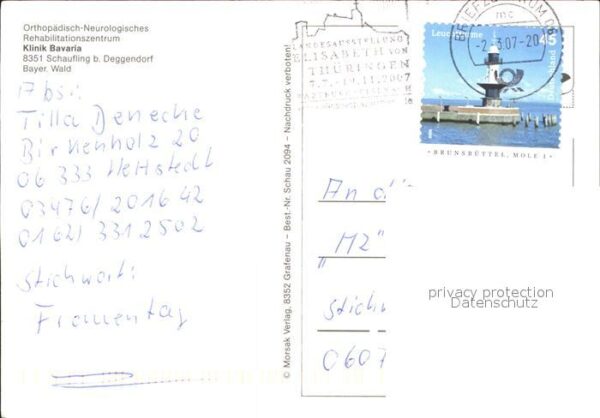 Orthopädisch-Neurologisches
Rehabilitationszentrum
Klinik Bavaria
8351 Schaufling b. Deggendorf
Bayer. Wald
Abs.:
Tilla Denecke
Birkenholz 20
06 333 Hettstedt
03476/ 2016 42
0162/ 331 2502
Stichwort:
Frauentag
© Morsak Verlag, 8352 Grafenau – Best.-Nr. Schau 2094 – Nachdruck verboten!
LANDESAUSSTELLUNG
ELISABETH VON
THÜRINGEN
7.7.-19.11.2007
BRIEFZENTRUM 06
mc
-2.-3.07-20
Leuchttürme
45
Deutschland
BRUNSBÜTTEL, MOLE 1
An d
"M2"
Stichw
0607
privacy protection
Datenschutz